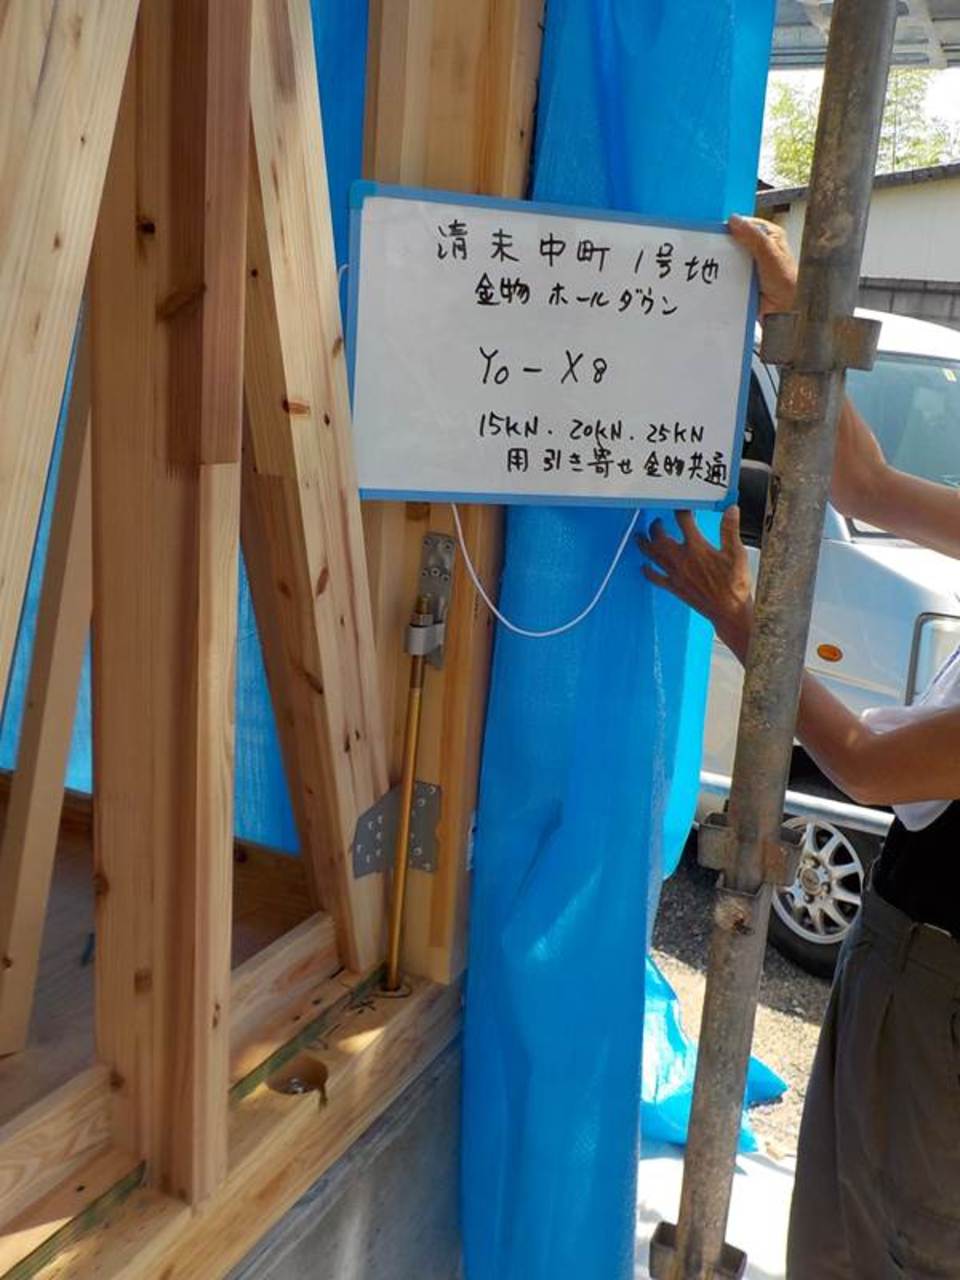 清末中町 1号地
金物 ホールダウン
Y0 - X8
15kN. 20kN. 25kN
用 引き寄せ 金物共通